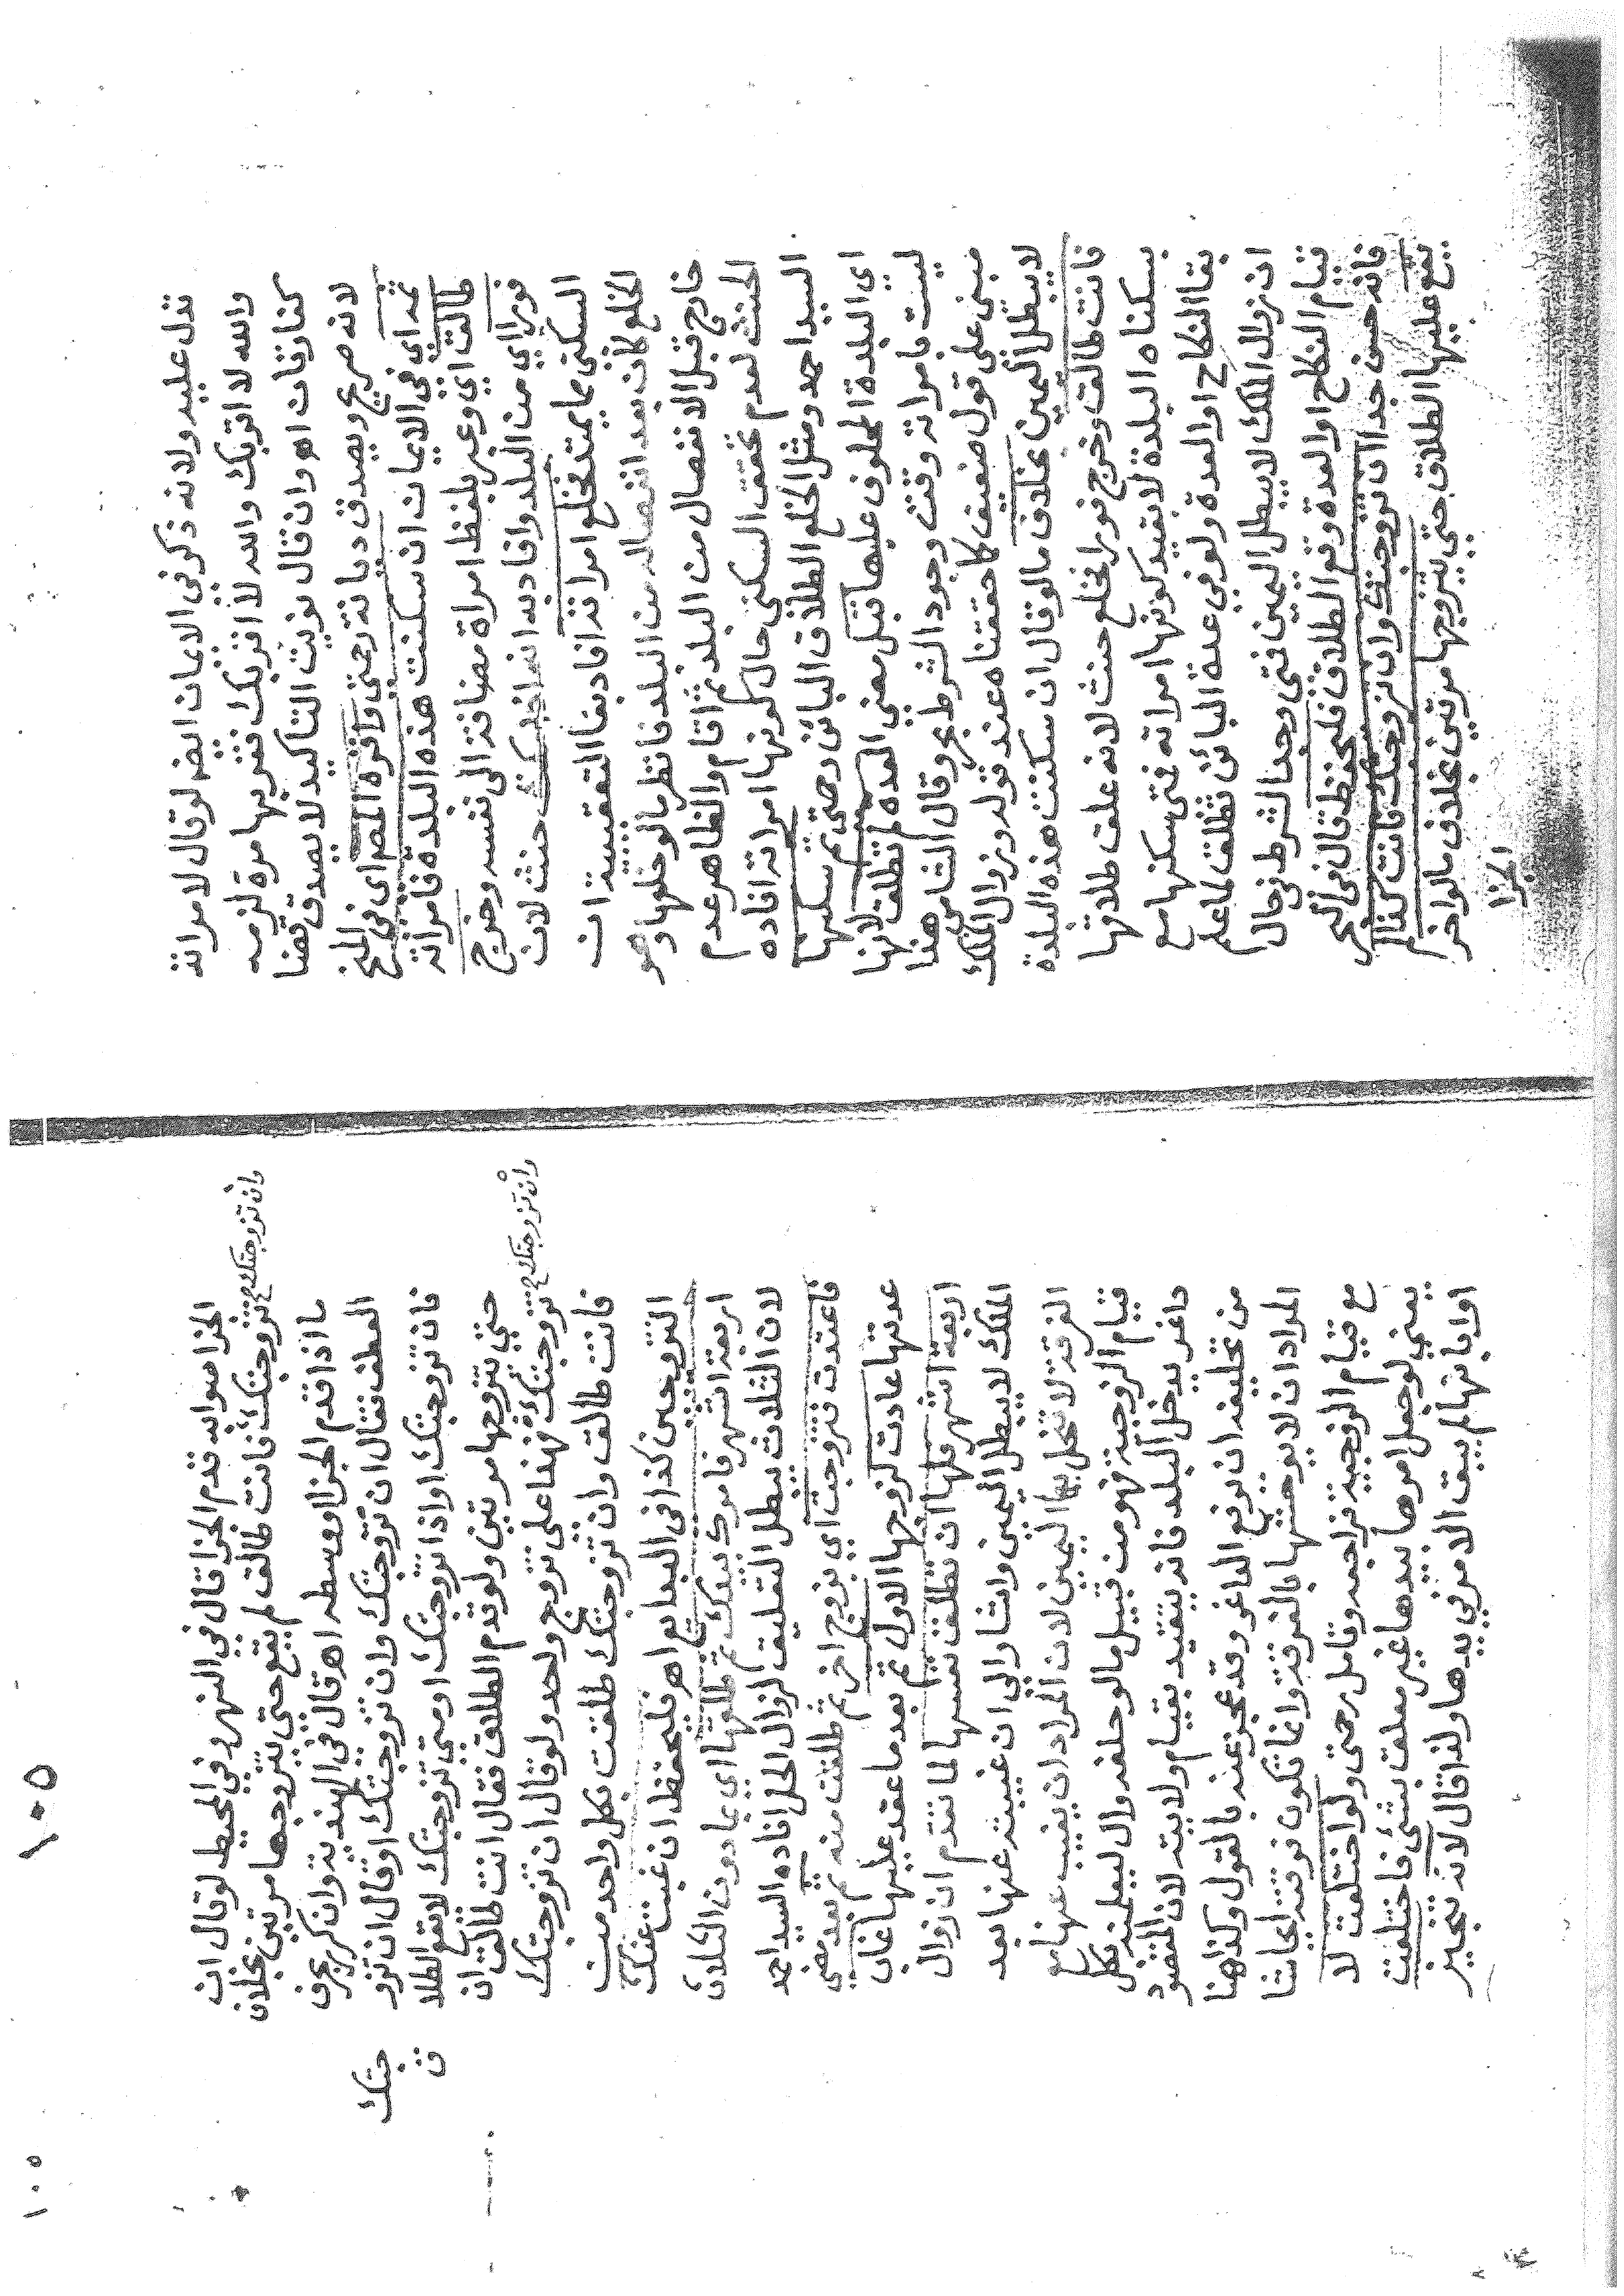 نقل عليه ولانه ذكر في الايمان ايضه لو قال لامراته
والله لا اقربك والله لا اقربك فقربها مرة لزمه
كفارتان اهـ وان قال نويت التاكيد لا يصدق قضا
لانه صريح ويصدق ديانة رحمتي واقره المصـ اي في المنح
ثمه اي في الايمان ان سكنت هذه البلدة فامراته
طالق اي وعبر بلفظ امراة مضافة الى نفسه وخرج
فورا اي من البلد وافاد به انه اذا مكث حنث لان
السكنى مما يمتد فخلع امراته افاد بفا التعقيبية ان
الخلع كان بعد انفصاله من البلد فانظر ما لو خلعها وهو
خارج قبل الانفصال من البلد ثم اقام والظاهر عدم
الحنث لعدم تحقق السكنى حال كونها امراته افاده
السيد احمد ومثل الخلع الطلاق البائن رحمتي ثم سكنها
اي البلدة المحلوف عليها قبل مضي العدة لم تطلق لانها
ليست بامراته وقت وجود الشرط بحر وقال الشامي هذا
مبنى على قول ضعيف كما حققناه عند قوله وزوال الملك
لا يبطل اليمين بخلاف ما لو قال ان سكنت هذه البلدة
فانت طالق وخرج فورا فخلع حنث لانه علق طلاقها
بسكناه البلدة لا بقيد كونها امراته فمتى سكنها مع
بقا النكاح او العدة ولو في عدة البائن تطلق لما علم
ان زوال الملك لا يبطل اليمين فمتى وجد الشرط في حال
قيام النكاح او العدة وقع الطلاق فليحفظ قال في البحر
فانه حسن جدا ان تزوجتك وان تزوجتك فانت كذا لم
يقع عليها الطلاق حتى يتزوجها مرتين بخلاف ما لو اخر
الجزا
١٠٥
١٠٥
الجزا صوابه قدم الجزا قال في النهر وفي المحيط لو قال ان
تزوجتك فانت طالق لم يقع حتى يتزوجها مرتين بخلاف
وان تزوجتك صح
ما اذا قدم الجزا او وسطه اهـ قال في الهنديه وان كرر بحرف
العطف فقال ان تزوجتك وان تزوجتك او قال ان تزو
جتك
فان تزوجتك او اذا تزوجتك او متى تزوجتك لا يقع الطلا
ق
حتى يتزوجها مرتين ولو قدم الطلاق فقال انت طالق ان
تزوجتك فهذا على تزوج واحد ولو قال ان تزوجتك
وان تزوجتك صح
فانت طالق وان تزوجتك طلقت بكل واحد من
التزوجين كذا في البدايع اهـ فليحفظ ان غبت عنك
اربعة اشهر فامرك بيدك ثم طلقها اي بما دون الثلاث
لان الثلاث يبطل التعليق لزوال الحل افاده السيد احمد
فاعتدت فتزوجت اي بزوج اخر ثم طلقت منه ثم بعد مضي
عدتها عادت لزوجها الاول ثم بعد ما عقد عليها غاب
اربعة اشهر فلها ان تطلق نفسها لما تقدم ان زوال
الملك لا يبطل اليمين واشار الى ان غيبته عنها بعد
الفرقة لا تنحل بها اليمين لان المراد ان يغيب عنها مع
قيام الزوجية فهو من قبيل ما لو حلفه وال ليعلمنه بكل
داعر يدخل البلد فانه يتقيد بقيام ولايته لان المقصود
من تحليفه ان يرفع الداعر وقد عجز عنه بالقول وكذا هنا
المراد ان لا يوحشها بالفرقة وانما تكون فرقته ايحاشا
مع قيام الزوجية فراجعه وتامل رحمتي ولو اختلفت لا
يعني لو جعل امرها بيدها غير معلق بشئ فاختلفت
او ابانها لم يبق الامر في يدها ولذا قال لانه تنجيز